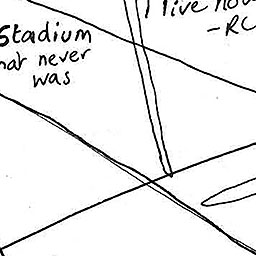 Stadium
that never
was
I live now
-RC